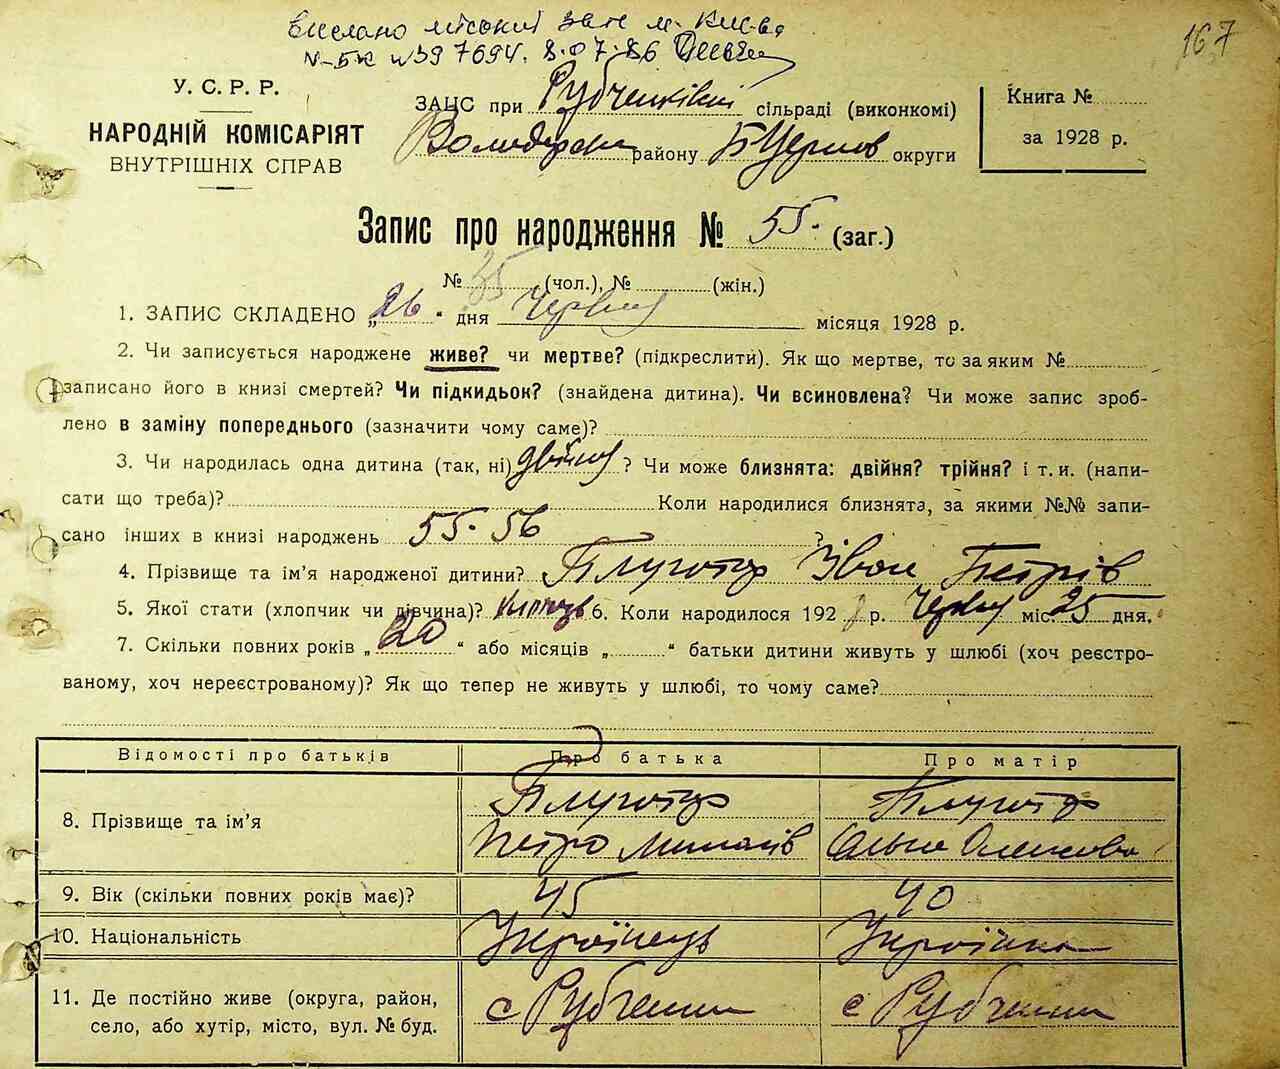 Вислано міськй Загс м. Києва
N-БК №397694. 8.07.86
167
У. С. Р. Р.
НАРОДНІЙ КОМІСАРІЯТ
ВНУТРІШНІХ СПРАВ
ЗАЦС при Рубченківській сільраді (виконкомі)
Володарськ району БЦерков округи
Книга №
за 1928 р.
Запис про народження № 55. (заг.)
№ 35 (чол.), № (жін.)
1. ЗАПИС СКЛАДЕНО „26“ дня Червня місяця 1928 р.
2. Чи записується народжене живе? чи мертве? (підкреслити). Як що мертве, то за яким №
записано його в книзі смертей? Чи підкидьок? (знайдена дитина). Чи всиновлена? Чи може запис зроб-
лено в заміну попереднього (зазначити чому саме)?
3. Чи народилась одна дитина (так, ні) двійня? Чи може близнята: двійня? трійня? і т. и. (напи-
сати що треба)? Коли народилися близнята, за якими №№ запи-
сано інших в книзі народжень 55-56 ?
4. Прізвище та ім’я народженої дитини? Плуготар Іван Петрів
5. Якої стати (хлопчик чи дівчина)? 6. Коли народилося 1928 р. Червня міс. 25 дня.
7. Скільки повних років „20“ або місяців „ “ батьки дитини живуть у шлюбі (хоч реєстро-
ваному, хоч нереєстрованому)? Як що тепер не живуть у шлюбі, то чому саме?
Відомості про батьків Про батька Про матір
8. Прізвище та ім’я Плуготар Плуготар
Петро Ольга Олексова
9. Вік (скільки повних років має)? 45 40
10. Національність Українець Українка
11. Де постійно живе (округа, район, с Рубченки с Рубченки
село, або хутір, місто, вул. № буд.